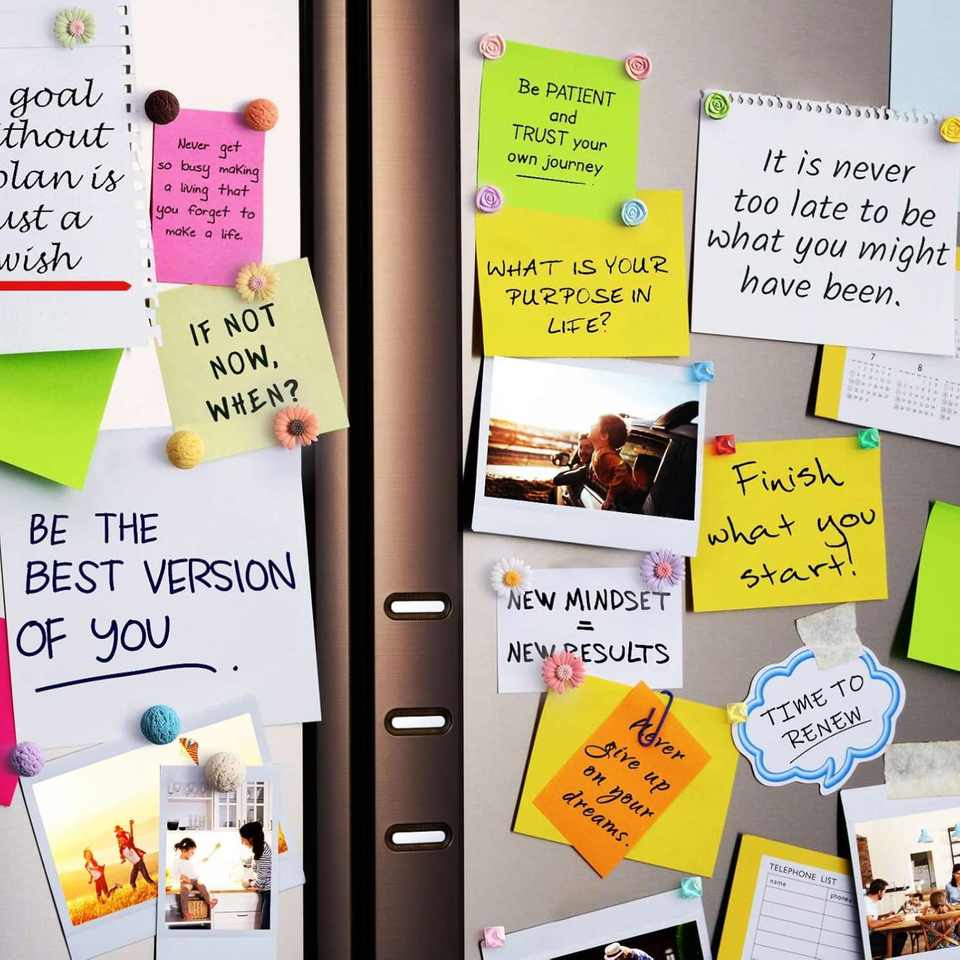 goal
ithout
plan is
ust a
wish
Never get
so busy making
a living that
you forget to
make a life.
IF NOT
NOW,
WHEN?
BE THE
BEST VERSION
OF YOU
Be PATIENT
and
TRUST your
own journey
WHAT IS YOUR
PURPOSE IN
LIFE?
It is never
too late to be
what you might
have been.
7 8
Finish
what you
start!
NEW MINDSET
=
NEW RESULTS
TIME TO
RENEW
Never
give up
on your
dreams.
TELEPHONE LIST
name phone